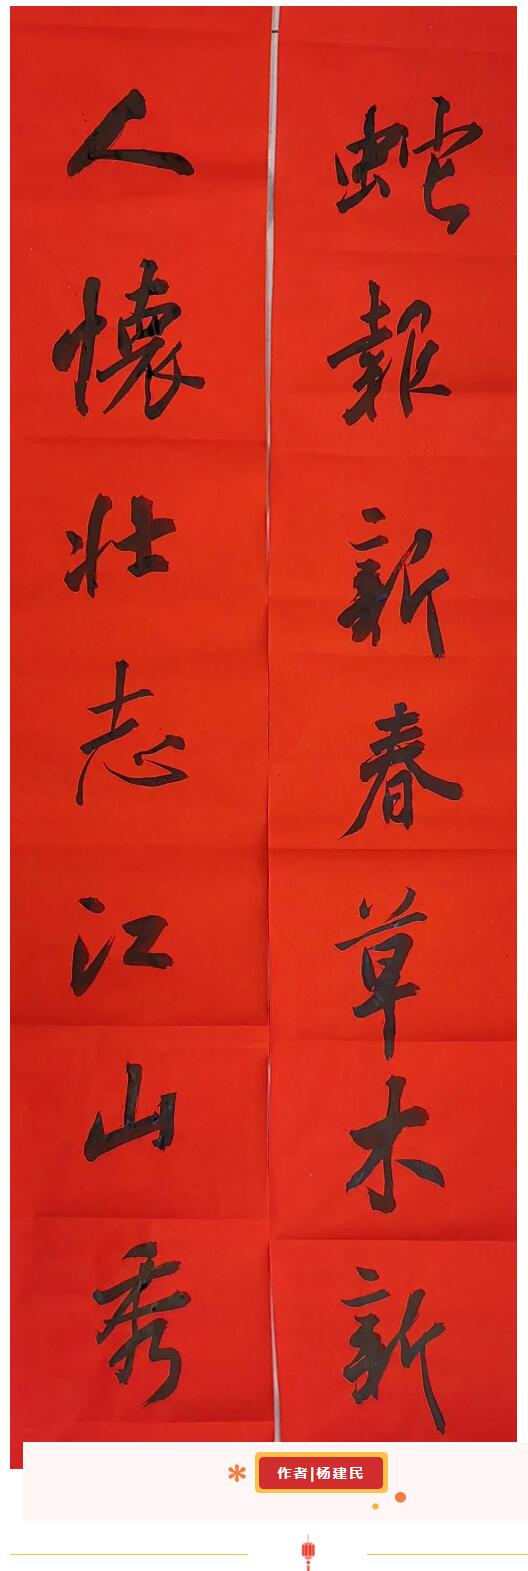 蛇報新春草木新
人懷壯志江山秀
作者|杨建民